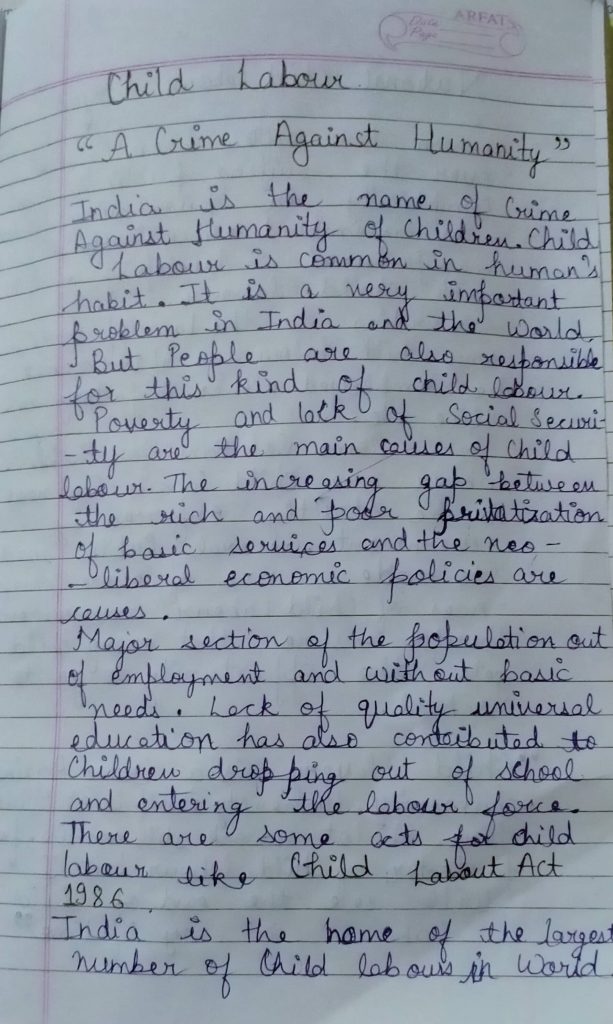 ARFAT
Date
Page
Child Labour.
“A Crime Against Humanity”
India is the name of Crime
Against Humanity of Children. Child
Labour is common in human's
habit. It is a very important
problem in India and the World.
But People are also responsible
for this kind of child labour.
Poverty and lack of Social Securi-
-ty are the main causes of Child
labour. The increasing gap between
the rich and poor privatization
of basic services and the neo-
-liberal economic policies are
causes.
Major section of the population out
of employment and without basic
needs. Lack of quality universal
education has also contributed to
Children dropping out of school
and entering the labour force.
There are some acts for child
labour like Child Labout Act
1986.
India is the home of the largest
number of Child labours in World.